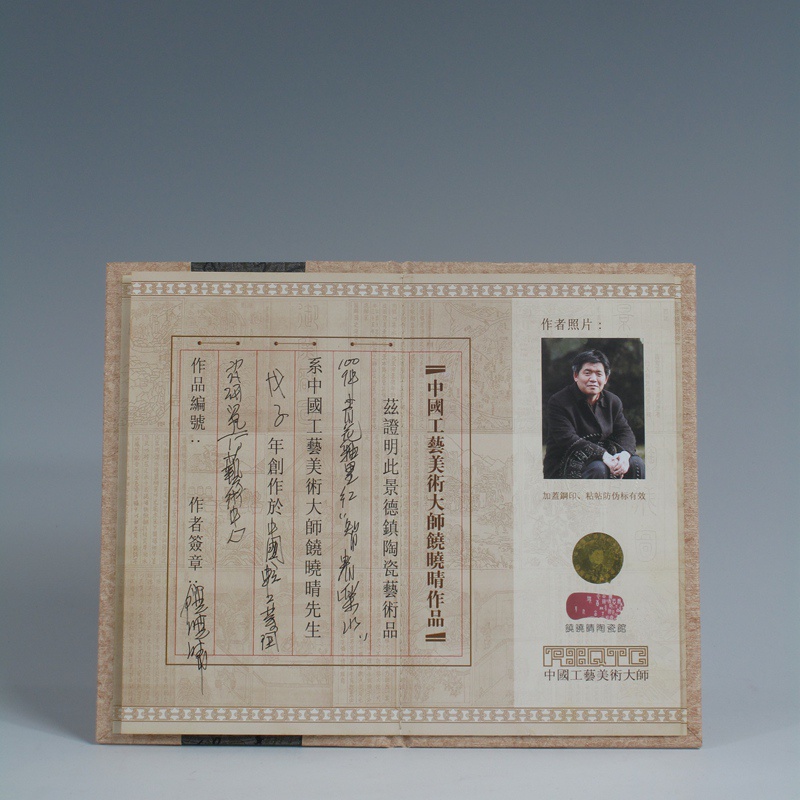 中國工藝美術大師饒曉晴作品
茲證明此景德鎮陶瓷藝術品
100件青花釉里紅"智者樂水"
系中國工藝美術大師饒曉晴先生
戊子年創作於中國輕工業陶
瓷研究所藝術中心
作品編號： 作者簽章：饒曉晴
作者照片：
加蓋鋼印、粘帖防伪标有效
饒曉晴陶瓷館
中國工藝美術大師